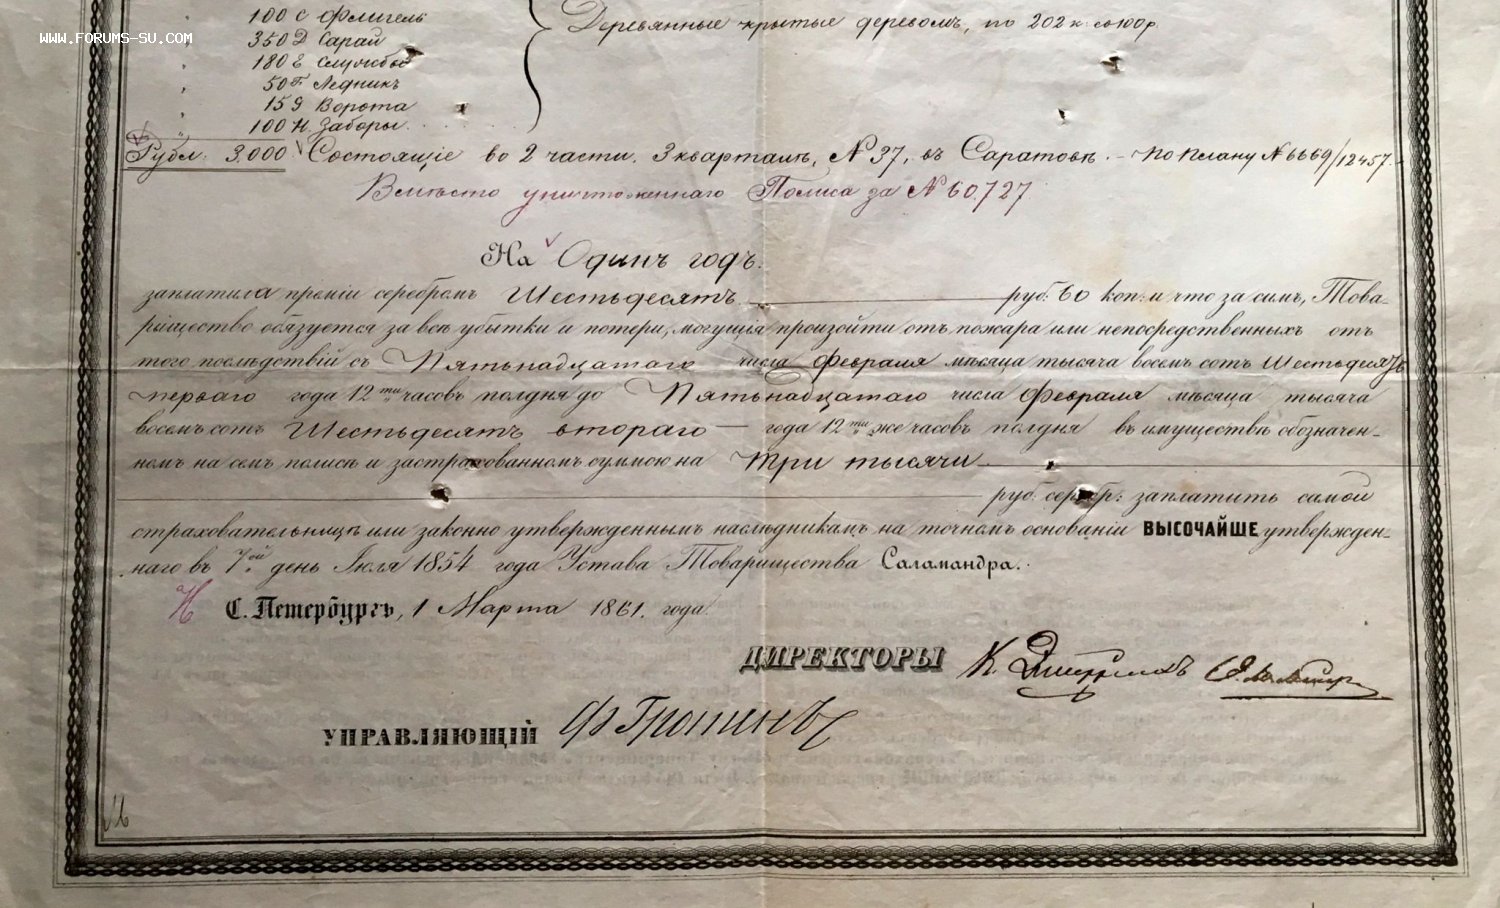 100 С Флигель
WWW.FORUMS-SU.COM
350 Д Сарай
180 Е Службы
50 Г Ледникъ
159 Ворота
100 Н. Заборы.
Деревянные крытые деревомъ, по 202 к. со 100 р.
Рубл. 3,000 Состоящіе во 2 части, 3 кварталѣ, № 37, въ Саратовѣ. - По плану № 6669/12457.
Вмѣсто уничтоженнаго Полиса за № 60,727
На Одинъ годъ.
заплатила преміи серебромъ Шестьдесятъ руб. 60 коп: и что за симъ, Това-
рищество обязуется за всѣ убытки и потери, могущія произойти отъ пожара или непосредственныхъ отъ
того послѣдствій съ Пятьнадцатаго числа Февраля мѣсяца тысяча восемь сотъ Шестьдесятъ
перваго года 12ти часовъ полдня до Пятьнадцатаго числа Февраля мѣсяца тысяча
восемь сотъ Шестьдесятъ втораго года 12ти же часовъ полдня въ имуществѣ обозначен-
номъ на семъ полисѣ и застрахованномъ суммою на Три тысячи
руб. серебр: заплатить самой
страховательницѣ или законно утвержденнымъ наслѣдникамъ на точномъ основаніи ВЫСОЧАЙШЕ утвержден-
наго въ 7ой день Іюля 1854 года Устава Товарищества Саламандра.
С. Петербургъ, 1 Марта 1861. года.
ДИРЕКТОРЫ К.
УПРАВЛЯЮЩІЙ